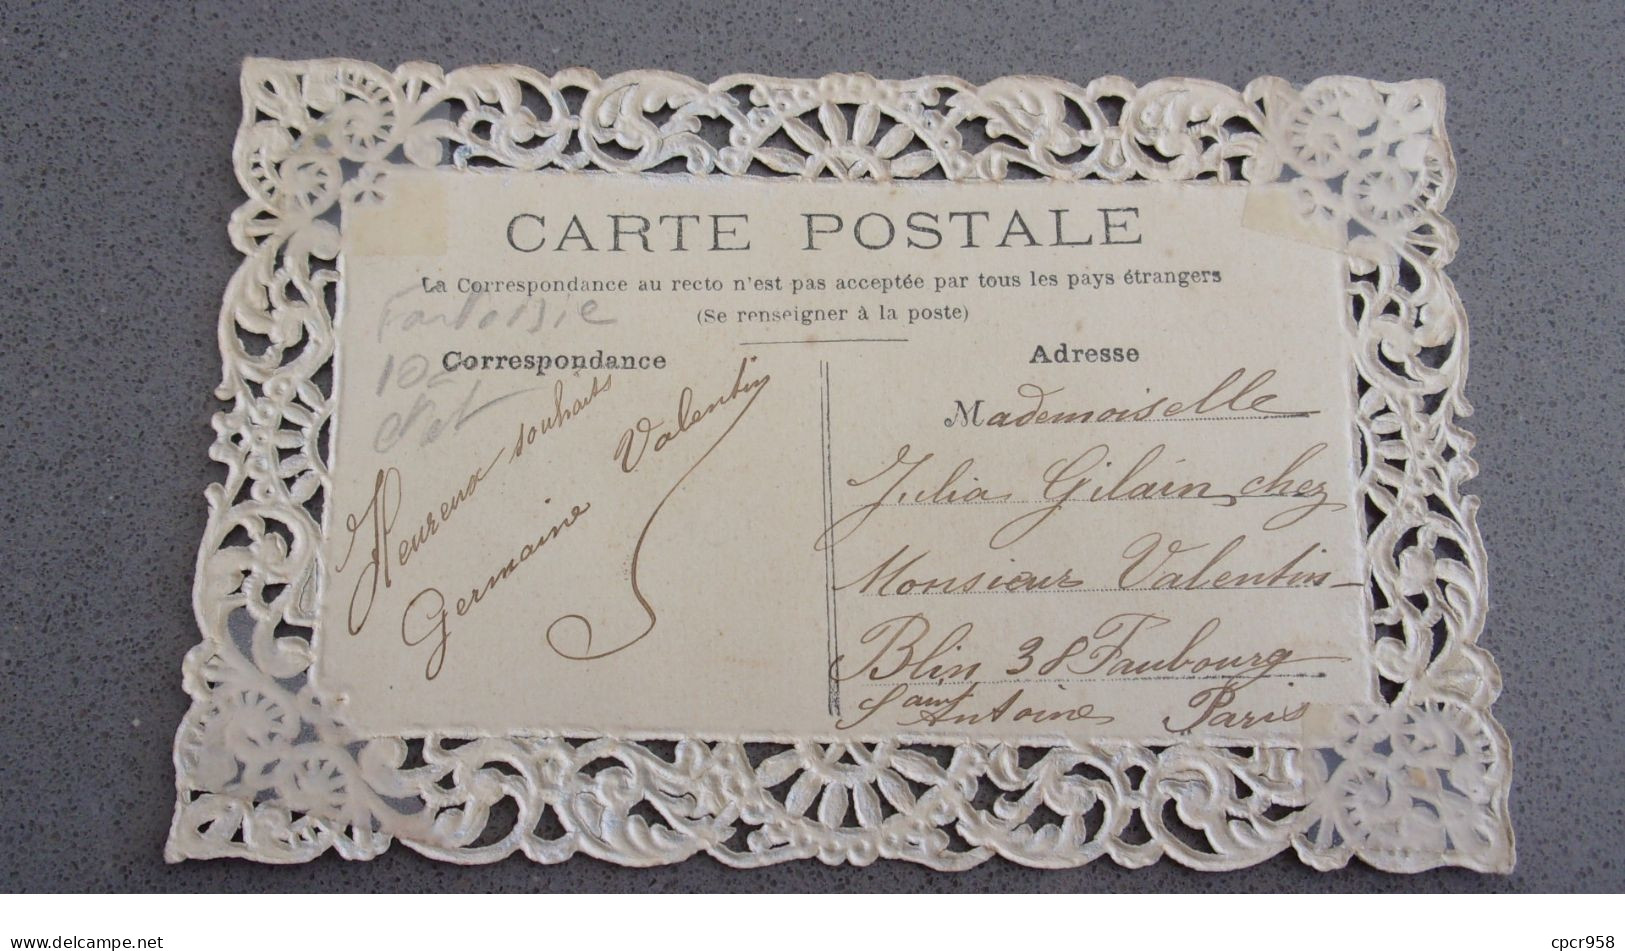 CARTE POSTALE
La Correspondance au recto n'est pas acceptée par tous les pays étrangers
(Se renseigner à la poste)
Fantaisie
10-
Net
Correspondance
Heureux souhaits
Germaine Valentin
Adresse
Mademoiselle
Julia Gilain chez
Monsieur Valentin-
Blin 38 Faubourg
Saint Antoine Paris
delcampe.net
cpcr958